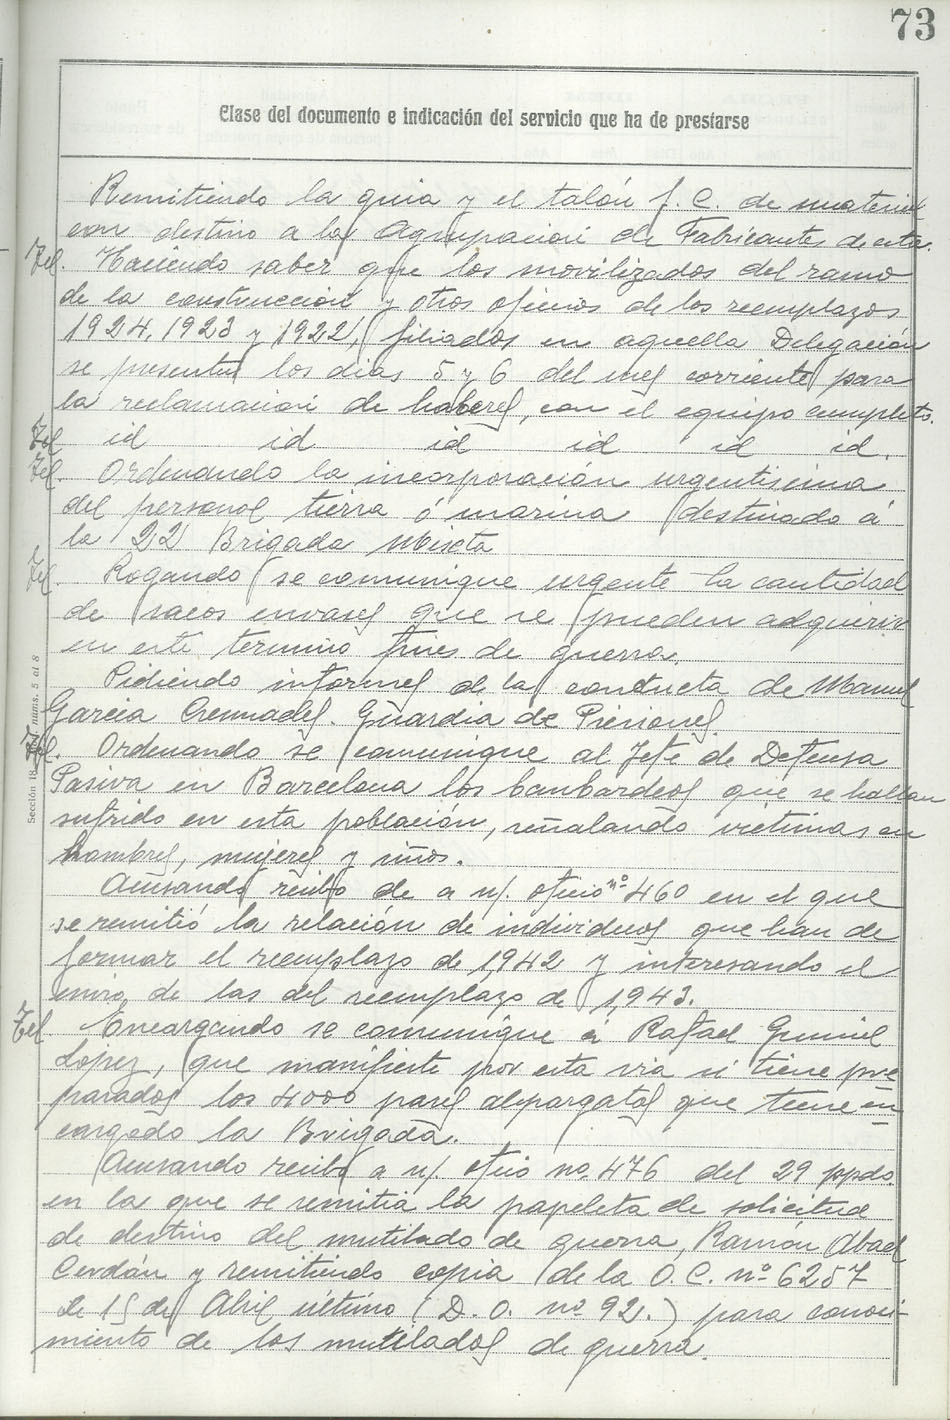 73
Clase del documento e indicación del servicio que ha de prestarse
Remitiendo la guia y el talón f. C. de material
con destino a la Agrupación de Fabricantes de esta.
Tel. Haciendo saber que los movilizados del ramo
de la construcción y otros oficios de los reemplazos
1924, 1923 y 1922, filiados en aquella Delegación
se presenten los dias 5 y 6 del mes corriente para
la reclamación de haberes, con el equipo completo.
Tel id id id id id id.
Tel. Ordenando la incorporación urgentisima
del personal tierra ó marina destinado á
la 22 Brigada Mixta
Tel. Rogando se comunique urgente la cantidad
de sacos envases que se pueden adquirir
en este termino fines de guerra.
Pidiendo informes de la conducta de Manuel
Garcia Guardia de Prisiones.
Tel. Ordenando se comunique al Jefe de Defensa
Pasiva en Barcelona los bombardeos que se hallan
sufrido en esta población, señalando victimas en
hombres, mujeres y niños.
Acusando recibo de a n/. oficio nº 460 en el que
se remitió la relación de individuos que han de
formar el reemplazo de 1942 y interesando el
envio de las del reemplazo de 1,943.
Tel Encargando se comunique a Rafael
Lopez, que manifieste por esta via si tiene pre
parados los 4000 pares alpargatas que tiene en
cargado la Brigada.
Acusando recibo a n/. oficio no. 476 del 29 ppdo.
en la que se remitia la papeleta de solicitud
de destino del mutilado de guerra, Ramón Abad
Cerdán y remitiendo copia de la O. C. nº 6257
de 15 de Abril último (D. O. nº 92.) para conoci-
miento de los mutilados de guerra.
Sección 18 nums. 5 al 8